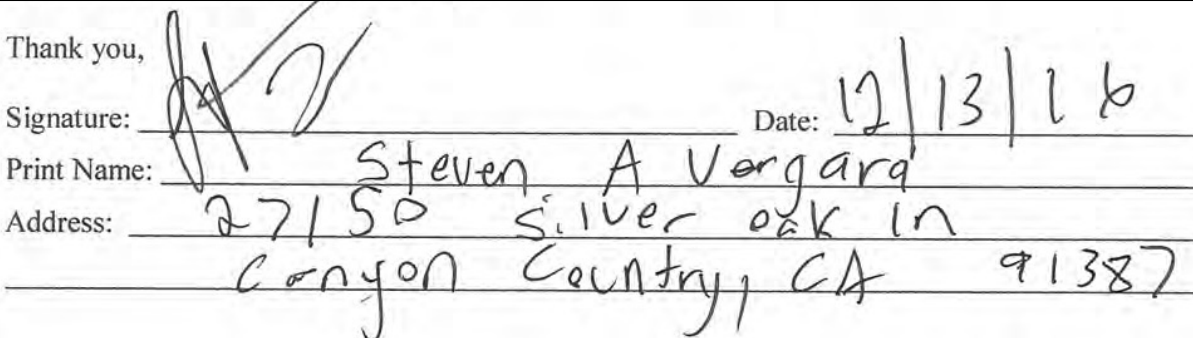 Thank you,
Signature: Date: 12/13/16
Print Name: Steven A Vergara
Address: 27150 silver oak ln
Canyon Country, CA 91387